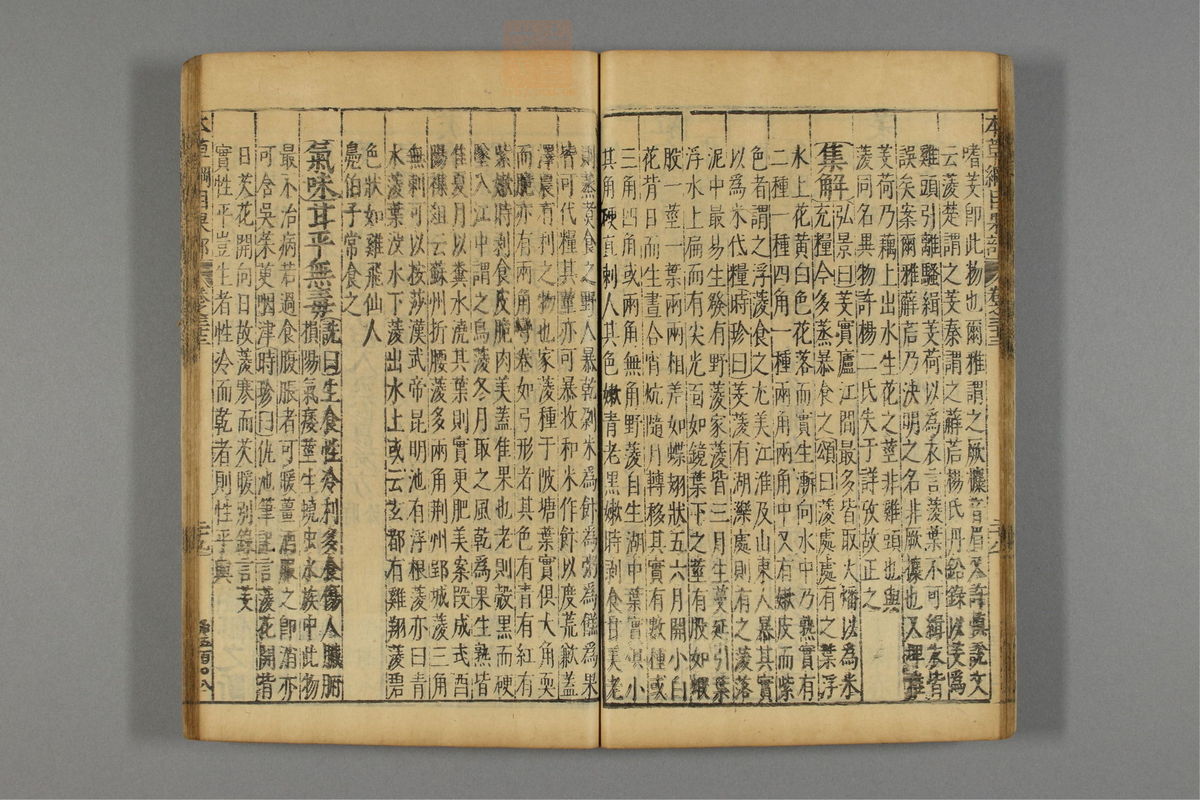 嗜芰即此物也爾雅謂之厥攗音眉又許慎說文
云蔆楚謂之芰秦謂之薢茩楊氏丹鉛錄以芰爲
雞頭引離騷緝芰荷以爲衣言蔆葉不可緝衣皆
誤矣案爾雅薢茩乃決明之名非厥攗也又埤雅
芰荷乃藕上出水生花之莖非雞頭也與
蔆同名異物許楊二氏失于詳攷故正之
集解弘景曰芰實廬江間最多皆取火燔以爲米
充糧今多蒸暴食之頌曰蔆處處有之葉浮
水上花黃白色花落而實生漸向水中乃熟實有
二種一種四角一種兩角兩角中又有嫩皮而紫
色者謂之浮蔆食之尤美江淮及山東人暴其實
以爲米代糧時珍曰芰蔆有湖濼處則有之蔆落
泥中最易生發有野蔆家蔆皆三月生蔓延引葉
浮水上扁而有尖光面如鏡葉下之莖有股如蝦
股一莖一葉兩兩相差如蝶翅狀五六月開小白
花背日而生晝合宵炕隨月轉移其實有數種或
三角四角或兩角無角野蔆自生湖中葉實俱小
其角硬直刺人其色嫩青老黑嫩時剝食甘美老
則蒸煑食之野人暴乾剁米爲飰爲粥爲餻爲果
皆可代糧其莖亦可暴收和米作飰以度荒歉蓋
澤農有利之物也家蔆種于陂塘葉實俱大角耎
而脆亦有兩角彎卷如弓形者其色有青有紅有
紫嫩時剝食皮脆肉美蓋佳果也老則殼黑而硬
墜入江中謂之烏蔆冬月取之風乾爲果生熟皆
佳夏月以糞水澆其葉則實更肥美案段成式酉
陽襍俎云蘇州折腰蔆多兩角荊州郢城蔆三角
無刺可以挼莎漢武帝昆明池有浮根蔆亦曰青
水蔆葉沒水下蔆出水上或云玄都有雞翔蔆碧
色狀如雞飛仙人
鳧伯子常食之
氣味甘平無毒詵曰生食性冷利多食傷人臟腑
損陽氣痿莖生蟯虫水族中此物
最不治病若過食腹脹者可暖薑酒服之即消亦
可含吳茱萸嚥津時珍曰仇池筆記言蔆花開背
日芡花開向日故蔆寒而芡暖別錄言芰
實性平豈生者性冷而乾者則性平與
本草綱目果部
卷之三十三